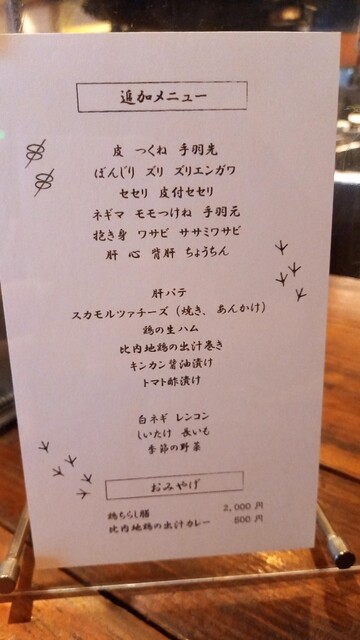 追加メニュー
皮 つくね 手羽先
ぼんじり ズリ ズリエンガワ
セセリ 皮付セセリ
ネギマ モモつけね 手羽元
抱き身 ワサビ ササミワサビ
肝 心 背肝 ちょうちん
肝パテ
スカモルツァチーズ (焼き、あんかけ)
鶏の生ハム
比内地鶏の出汁巻き
キンカン醤油漬け
トマト酢漬け
白ネギ レンコン
しいたけ 長いも
季節の野菜
おみやげ
鶏ちらし膳 2,000 円
比内地鶏の出汁カレー 800 円